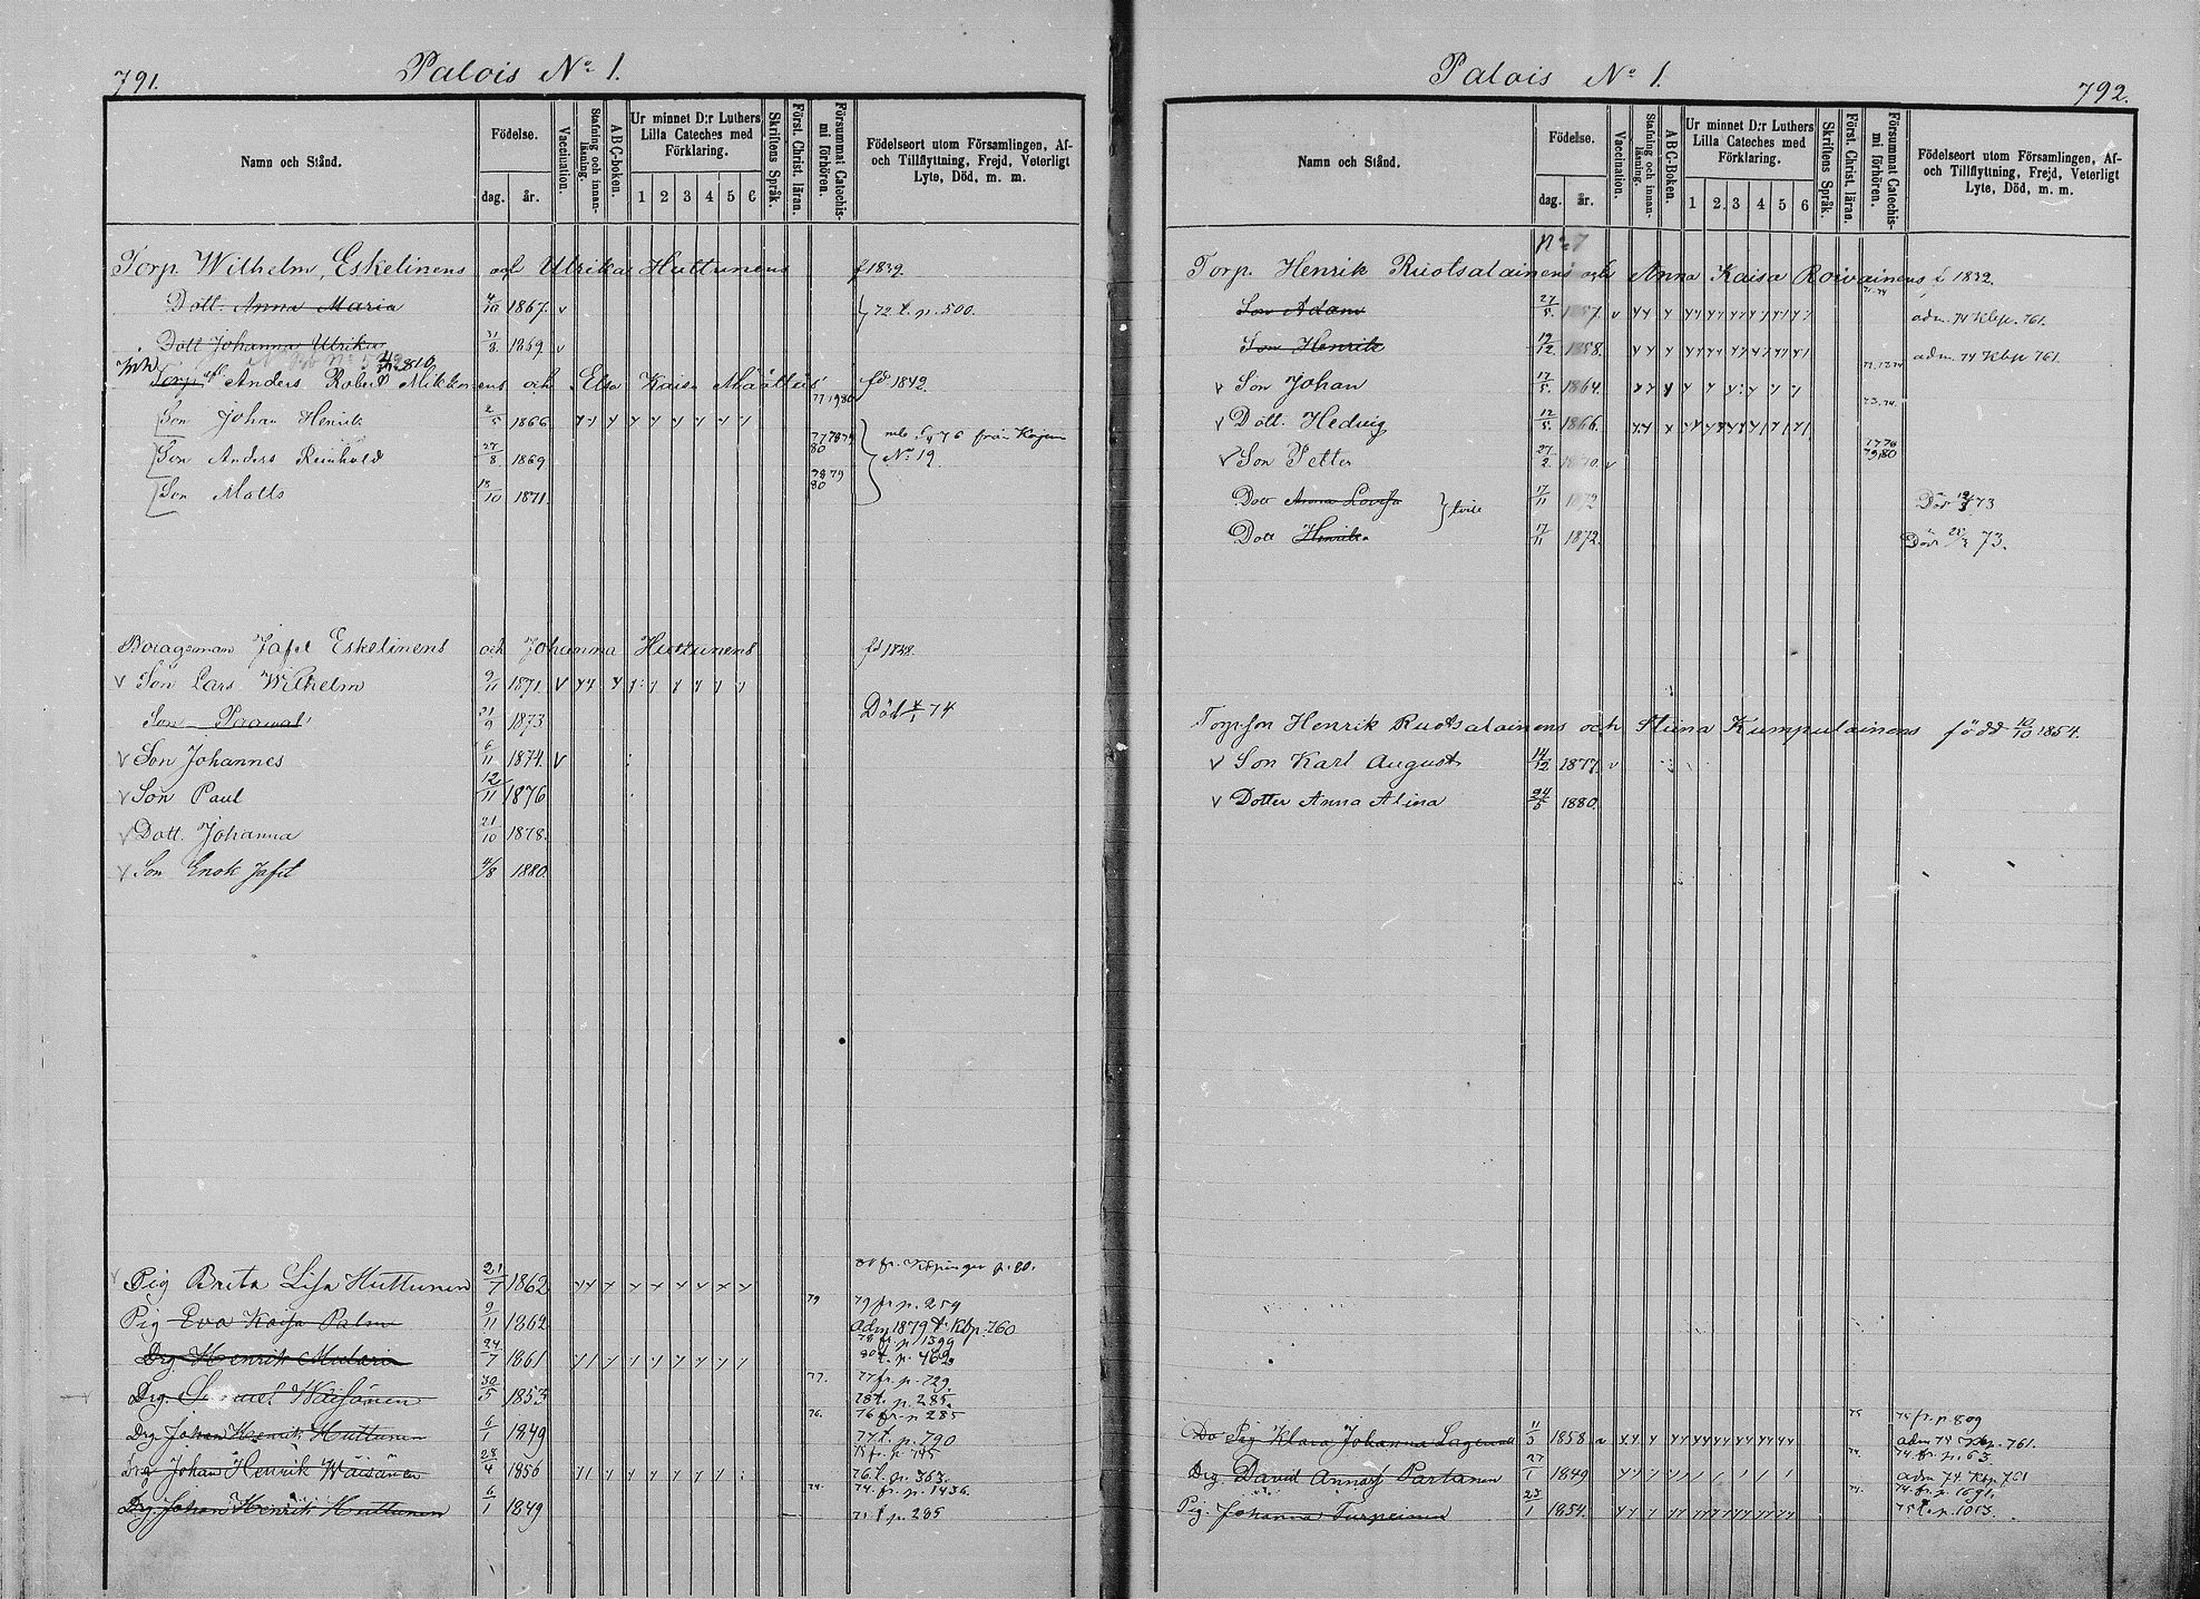 791.
Palois No 1.
Namn och Stånd.
Födelse.
dag.
år.
Vaccination.
Stafning och innan-läsning.
ABC-boken.
Ur minnet D:r Luthers Lilla Cateches med Förklaring.
1 2 3 4 5 6
Skriftens Språk.
Först. Christ. läran.
Försummat Catechis-mi förhören.
Födelseort utom Församlingen, Af- och Tillflyttning, Frejd, Veterligt Lyte, Död, m. m.
Torp. Wilhelm Eskelinens och Ulrika Huttunens f 1839.
Dott. Anna Maria 4/10 1867. v 72 t. p. 500.
Dott Johanna Ulrika 31/8 1869. v
Torp Anders Robert Mikkonens och Elsa Kaisa Määttäs fd 1842.
77 79 80
Son Johan Henrik 2/5 1866 y y y y y y y y y
Son Anders Reinhold 27/8 1869 77 78 79 80 No 19.
Son Matts 18/10 1871. 78 79 80
Jafet Eskelinens och Johanna Huttunens fd 1848.
v Son Lars Wilhelm 9/11 1871. v y y y y y y y y y
Son Paawal 21/9 1873 Död 4/1 74
v Son Johannes 6/11 1874. v
v Son Paul 12/11 1876
v Dott. Johanna 21/10 1878.
v Son Enok Jafet 4/8 1880.
Pig Brita Lisa Huttunen 21/7 1862 y y y y y y y y y
Pig Eva Kaisa Palm 9/11 1862 79 79 fr. p. 259
adm 1879 t. Kbp. 760
Drg. Henrik Mulari 24/7 1861 y y y y y y y y y 78 fr. p. 1399
80 t. p. 462.
Drg. Samuel Wäisänen 30/5 1853 77. 77 fr. p. 729.
78 t. p. 285.
Drg Johan Henrik Huttunen 6/1 1849 76. 76 fr. p 285
77 t. p. 790
Drg Johan Henrik Wäisänen 28/4 1856 y y y y y y y y 75 fr. p. 745
76. t. p. 363.
Drg. Johan Henrik Huttunen 6/1 1849 74. 74. fr. p. 1436.
75 t p. 285
Palois No 1.
792.
Namn och Stånd.
Födelse.
dag.
år.
Vaccination.
Stafning och innan-läsning.
ABC-Boken.
Ur minnet D:r Luthers Lilla Cateches med Förklaring.
1 2 3 4 5 6
Skriftens Språk.
Först. Christ. läran.
Försummat Catechis-mi förhören.
Födelseort utom Församlingen, Af- och Tillflyttning, Frejd, Veterligt Lyte, Död, m. m.
No 7
Torp. Henrik Ruotsalainens och Anna Kaisa Roivainens f 1832.
Son Adam 27/5. 1857. v adm. 74 Kbp. 761.
Son Henrik 12/12. 1858. adm. 74 Kbp 761.
v Son Johan 17/5. 1864.
73. 74.
v Dott. Hedvig 12/5. 1866.
v Son Petter 27/2. 1870. v 79 80
Dott Anna Lovisa 17/11 1872 Död 12/3 73
Dott Henrika 17/11 1872. Död 73.
Torpson Henrik Ruotsalainens och Stina Kumpulainens född 10/10 1854.
v Son Karl August 14/12 1877. v
v Dotter Anna Alina 24/5 1880.
Do Pig Klara Johanna 11/3 1858 75 75 fr. p 809
adm 75 Kbp. 761.
Drg. David Partanen 27/1 1849 74. 74. fr. p. 63.
adm 74. Kbp. 761
Pig. Johanna Turpeinen 23/1 1854. 74. 74. fr. p. 1691.
75 t. p. 1013.